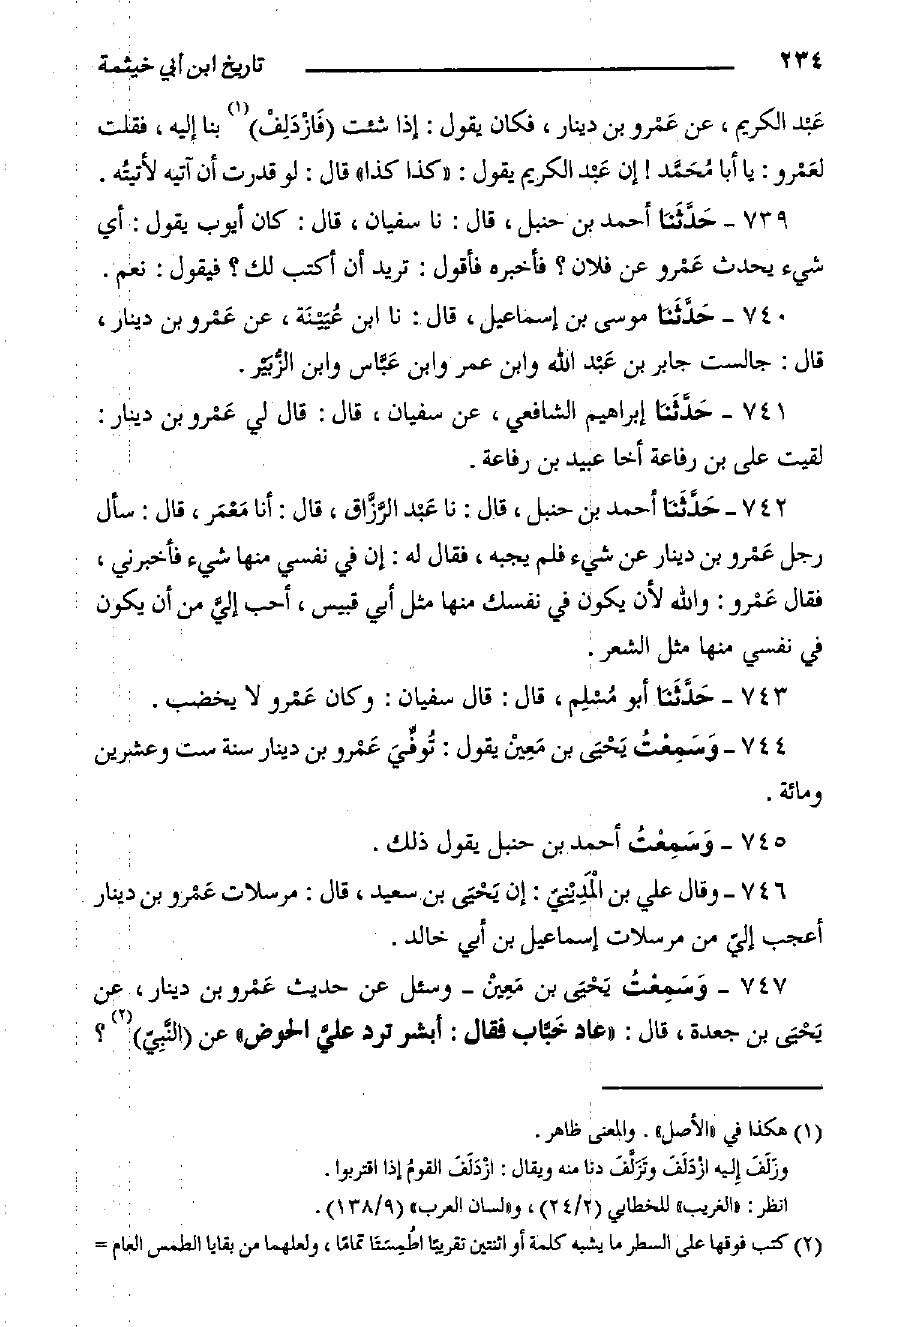 ٢٣٤ تاريخ ابن أبي خيثمة
عَبْد الكريم ، عن عَمْرو بن دينار ، فكان يقول : إذا شئت (فَازْدَلِفْ)(١) بنا إليه ، فقلت
لعَمْرو : يا أبا مُحَمَّد ! إن عَبْد الكريم يقول : «كذا كذا» قال : لو قدرت أن آتيه لأتيتُه .
٧٣٩ ـ حَدَّثَنَا أحمد بن حنبل ، قال : نا سفيان ، قال : كان أيوب يقول : أي
شيء يحدث عَمْرو عن فلان ؟ فأخبره فأقول : تريد أن أكتب لك ؟ فيقول : نعم .
٧٤٠ ـ حَدَّثَنَا موسى بن إسماعيل ، قال : نا ابن عُيَيْنَة ، عن عَمْرو بن دينار ،
قال : جالست جابر بن عَبْد الله وابن عمر وابن عَبَّاس وابن الزُّبَيْر .
٧٤١ ـ حَدَّثَنَا إبراهيم الشافعي ، عن سفيان ، قال : قال لي عَمْرو بن دينار :
لقيت على بن رفاعة أخا عبيد بن رفاعة .
٧٤٢ ـ حَدَّثَنَا أحمد بن حنبل ، قال : نا عَبْد الرَّزَّاق ، قال : أنا مَعْمَر ، قال : سأل
رجل عَمْرو بن دينار عن شيء فلم يجبه ، فقال له : إن في نفسي منها شيء فأخبرني ،
فقال عَمْرو : والله لأن يكون في نفسك منها مثل أبي قبيس ، أحب إليَّ من أن يكون
في نفسي منها مثل الشعر .
٧٤٣ ـ حَدَّثَنَا أبو مُسْلِم ، قال : قال سفيان : وكان عَمْرو لا يخضب .
٧٤٤ ـ وَسَمِعْتُ يَحْيَى بن مَعِيْن يقول : تُوفِّيَ عَمْرو بن دينار سنة ست وعشرين
ومائة .
٧٤٥ ـ وَسَمِعْتُ أحمد بن حنبل يقول ذلك .
٧٤٦ ـ وقال علي بن الْمَدِيْنِيّ : إن يَحْيَى بن سعيد ، قال : مرسلات عَمْرو بن دينار
أعجب إليّ من مرسلات إسماعيل بن أبي خالد .
٧٤٧ ـ وَسَمِعْتُ يَحْيَى بن مَعِيْن ـ وسئل عن حديث عَمْرو بن دينار ، عن
يَحْيَى بن جعدة ، قال : «عاد خَبَّاب فقال : أبشر ترد عليَّ الحوض» عن (النَّبِيّ)(٢) ؟
(١) هكذا في «الأصل» . والمعنى ظاهر .
وزَلَفَ إليه ازْدَلَفَ وتَزَلَّفَ دنا منه ويقال : ازْدَلَفَ القومُ إذا اقتربوا .
انظر : «الغريب» للخطابي (٢/ ٢٤) ، و«لسان العرب» (٩/ ١٣٨) .
(٢) كتب فوقها على السطر ما يشبه كلمة أو اثنتين تقريبًا اطُمِسَتَا تمامًا ، ولعلهما من بقايا الطمس العام =